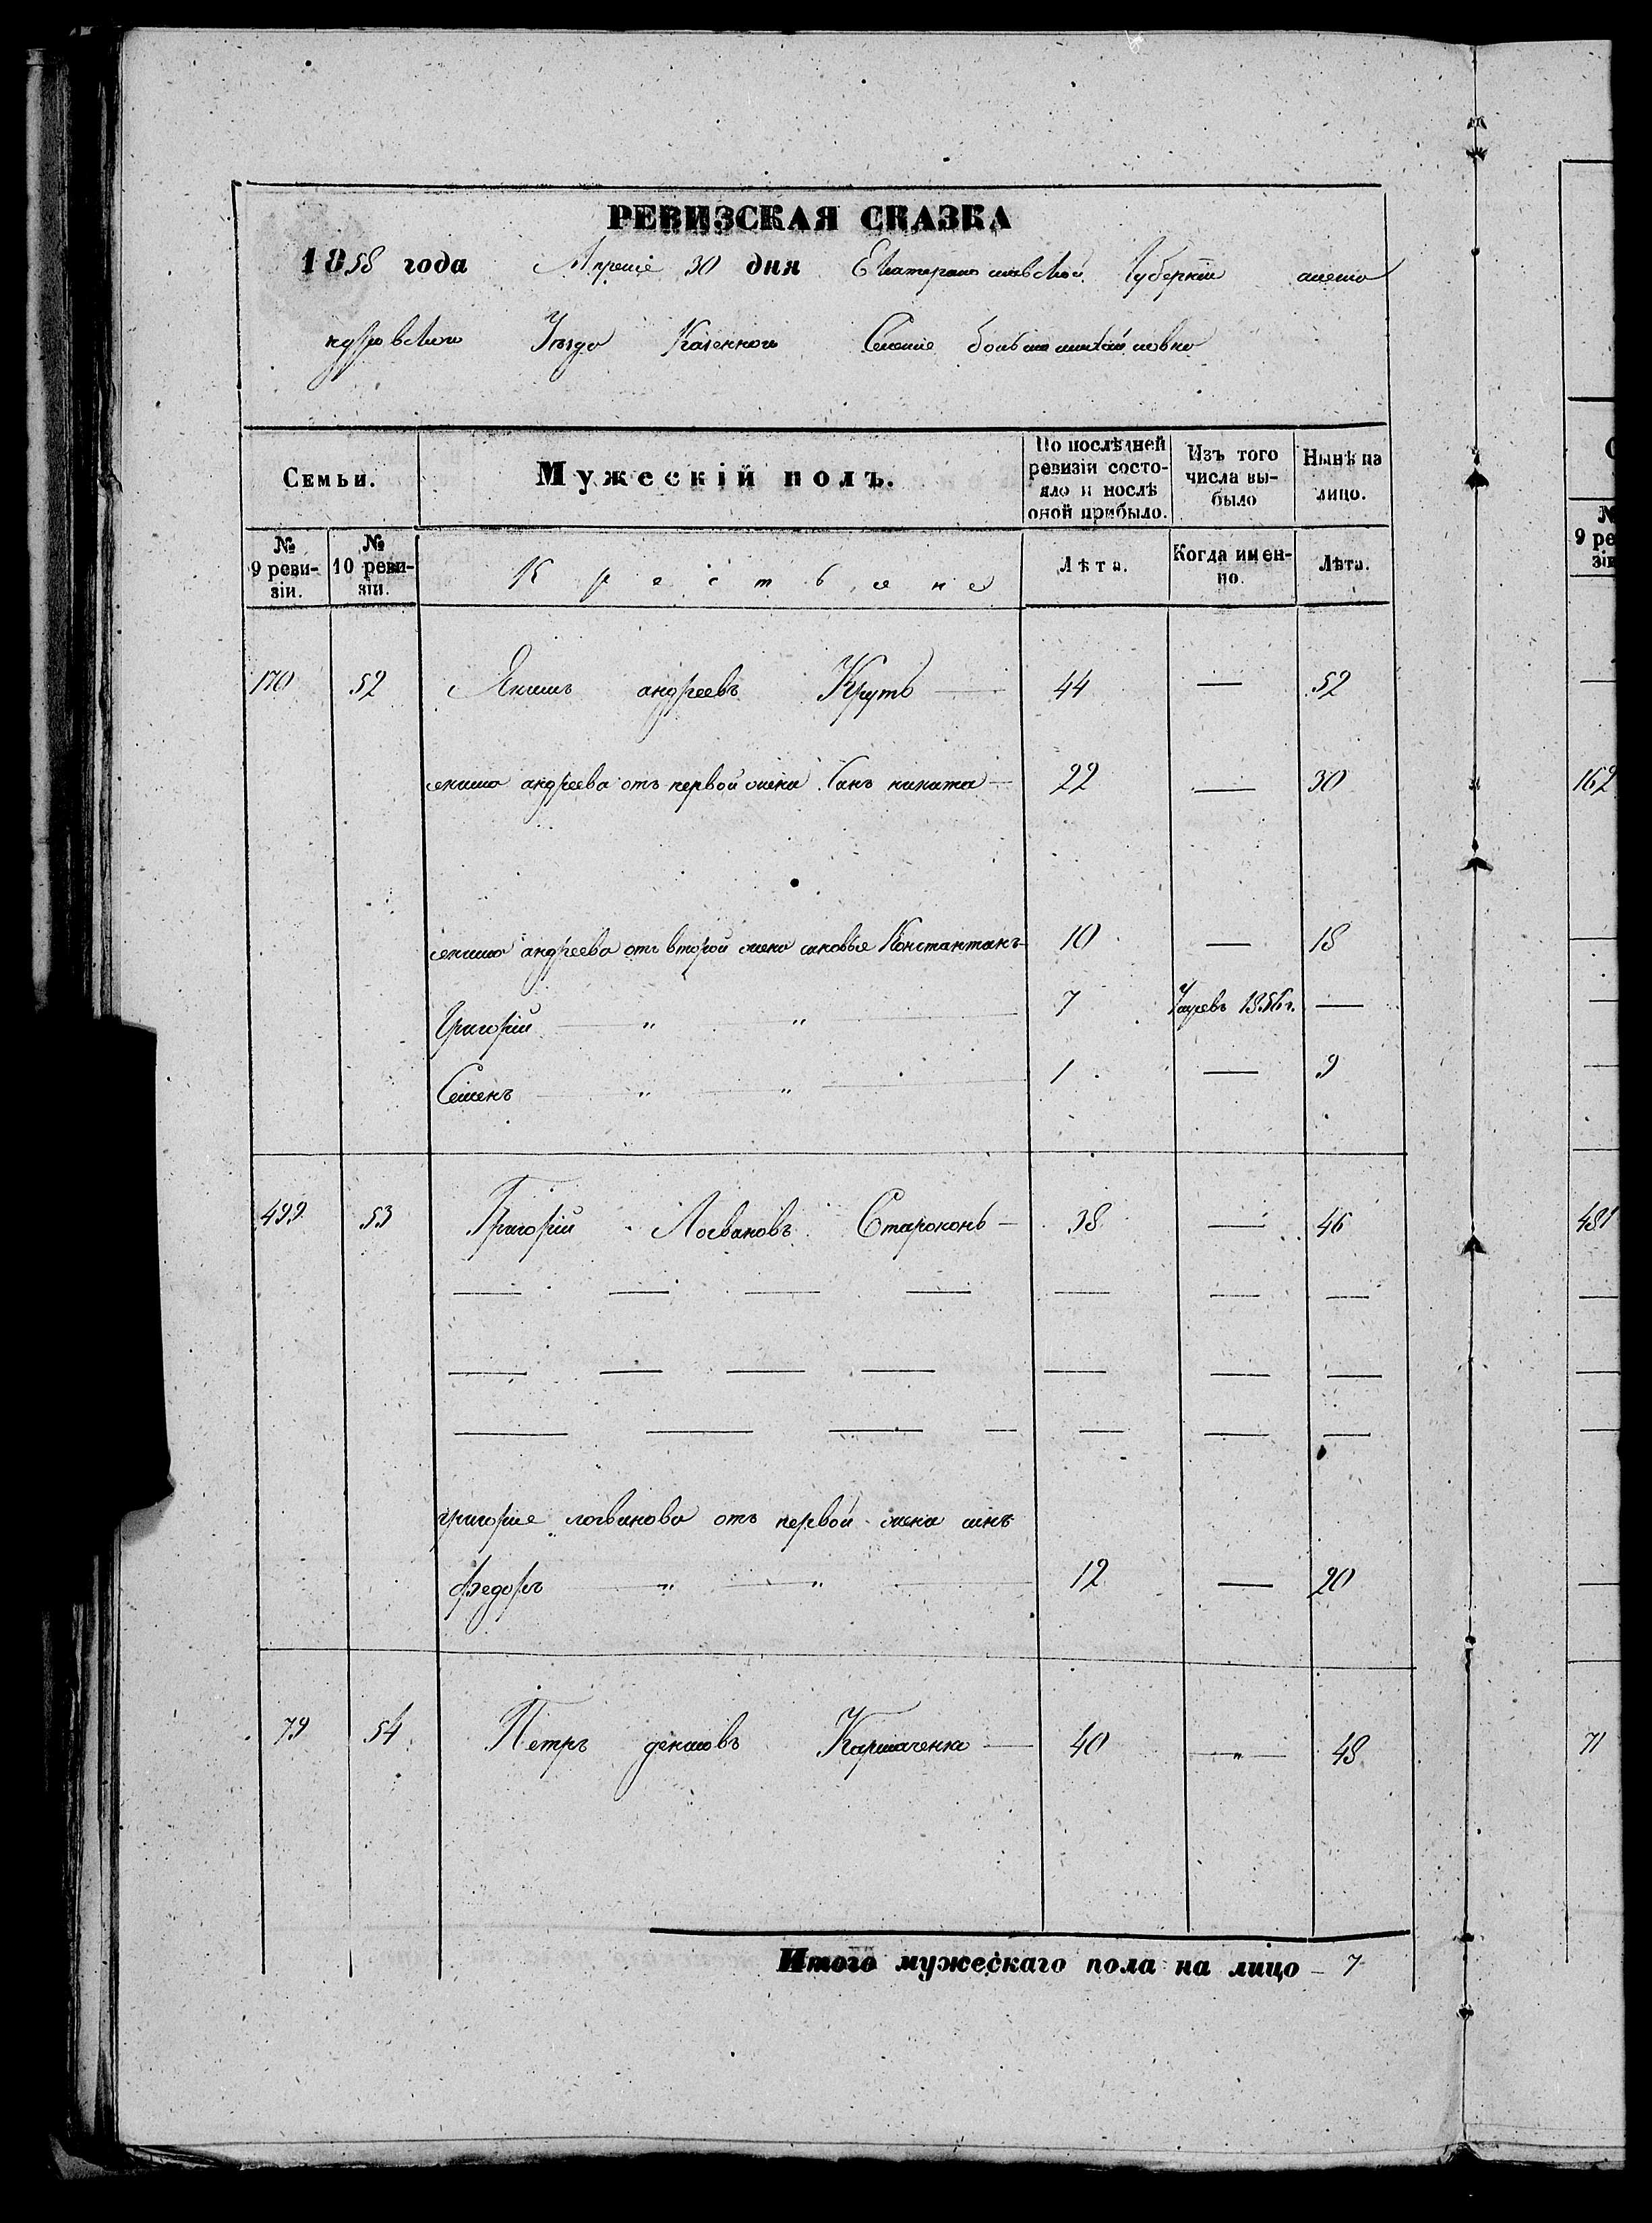 РЕВИЗСКАЯ СКАЗКА
1858 года Апреліе 30 дня Екатеринославской Губерніи алекса
ндровского Уезда Казенного Селеніе большемихайловка
Семьи.
Мужескій полъ.
По послѣдней ревизіи состояло и послѣ оной прибыло.
Изъ того числа выбыло
Нынѣ на лицо.
№ 9 ревизіи.
№ 10 ревизіи.
Крестьяне
Лѣта.
Когда именно.
Лѣта.
170 52 Якимъ андреевъ Круть 44 — 52
екима андреева отъ первой жени Синъ никита 22 — 30
екима андреева отъ второй жени синовья Константинъ 10 — 18
Григорій " " 7 Умревъ 1856 г. —
Семенъ " " 1 — 9
499 53 Григорій Логвиновъ Староконь 38 — 46
григорие логвинова отъ первой жени синъ
федоръ " " 12 — 20
79 54 Петръ денисовъ 40 " 48
Итого мужескаго пола на лицо 7
9 ре
зіи
162
481
71